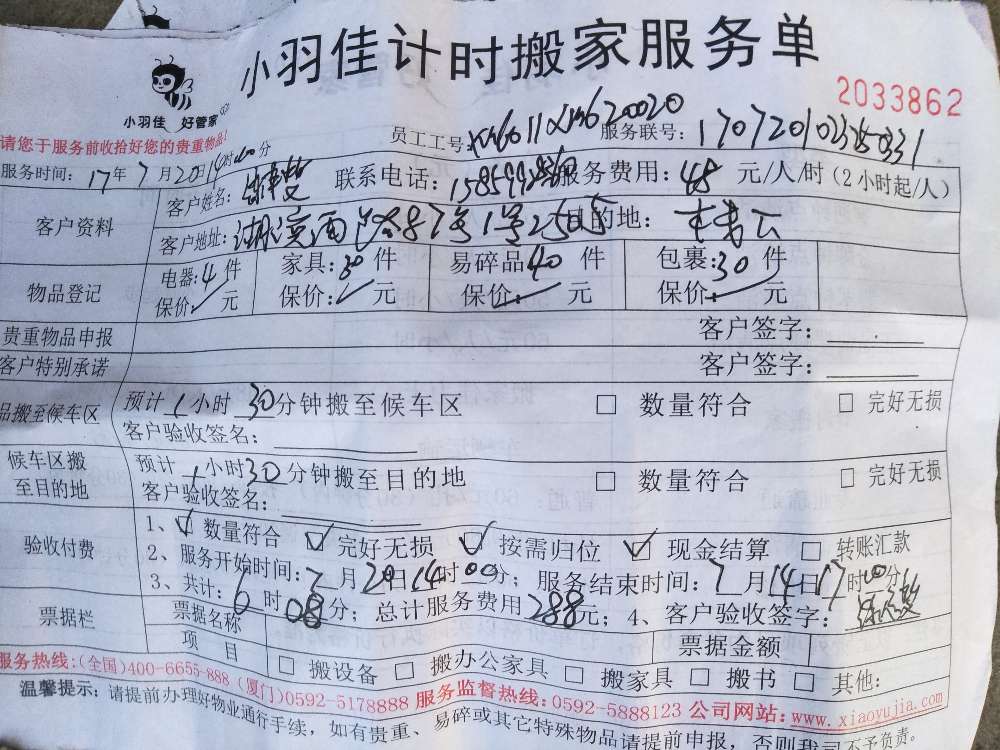 小羽佳计时搬家服务单
小羽佳 好管家
2033862
请您于服务前收拾好您的贵重物品!
员工工号: 服务联号:
服务时间: 17年 7月20日14时00分
客户资料
客户姓名: 联系电话: 服务费用: 48 元/人/时(2小时起/人)
客户地址: 目的地:
物品登记
电器: 4件 家具: 30件 易碎品 40件 包裹: 30件
保价: 元 保价: 元 保价: 元 保价: 元
贵重物品申报 客户签字:
客户特别承诺 客户签字:
品搬至候车区
预计 1小时 30分钟搬至候车区 □ 数量符合 □ 完好无损
客户验收签名:
候车区搬至目的地
预计 1小时30分钟搬至目的地 □ 数量符合 □ 完好无损
客户验收签名:
验收付费
1、☑ 数量符合 ☑ 完好无损 ☑ 按需归位 ☑ 现金结算 □ 转账汇款
2、服务开始时间: 7月20日14时00分; 服务结束时间: 7月14日17时00分
3、共计: 6时 分; 总计服务费用 288元; 4、客户验收签字:
票据栏
票据名称 票据金额
项 目 □ 搬设备 □ 搬办公家具 □ 搬家具 □ 搬书 □ 其他:
服务热线:(全国)400-6655-888 (厦门)0592-5178888 服务监督热线:0592-5888123 公司网站:www.xiaoyujia.com
温馨提示: 请提前办理好物业通行手续, 如有贵重、易碎或其它特殊物品请提前申报, 否则我司不予负责。